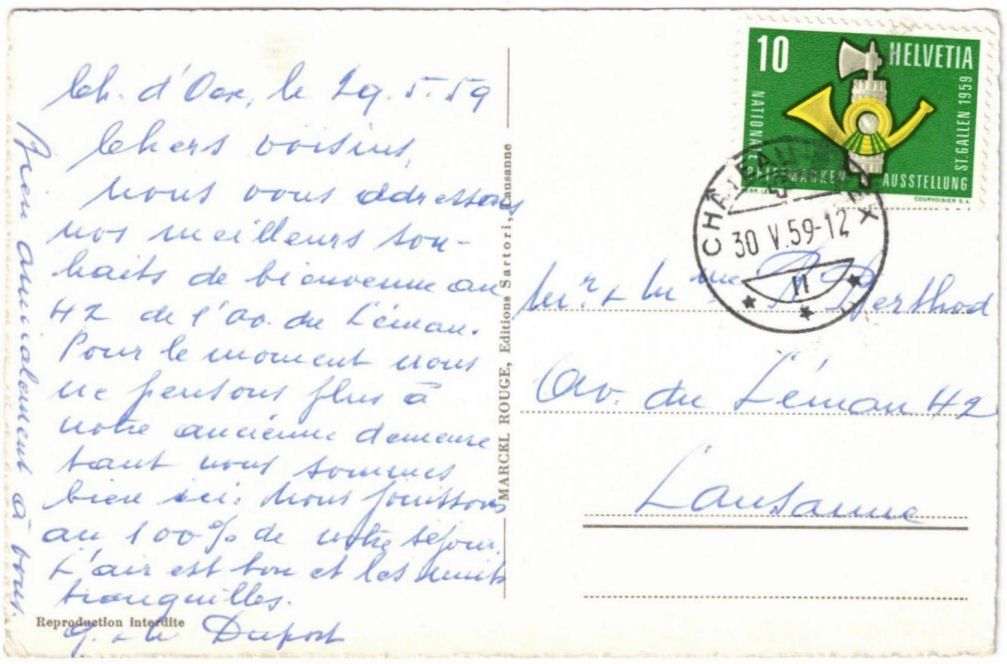 Ch. d'Oex, le 29. 5. 59
Chers voisins,
Nous vous adressons
nos meilleurs sou-
haits de bienvenue au
42 de l'av. du Léman.
Pour le moment nous
ne pensons plus à
notre ancienne demeure
tant nous sommes
bien ici: Nous jouissons
au 100% de notre séjour.
L'air est bon et les nuits
tranquilles.
Dupont
Bien amicalement à vous.
Reproduction interdite
MARCEL ROUGE, Editions Sartori, Lausanne
10 HELVETIA
NATIONALE BRIEFMARKEN AUSSTELLUNG ST. GALLEN 1959
COURVOISIER S.A.
CHÂTEAU-D'ŒX
30 V.59-12
Mr. & Mme R. Berthod
Av. du Léman 42
Lausanne